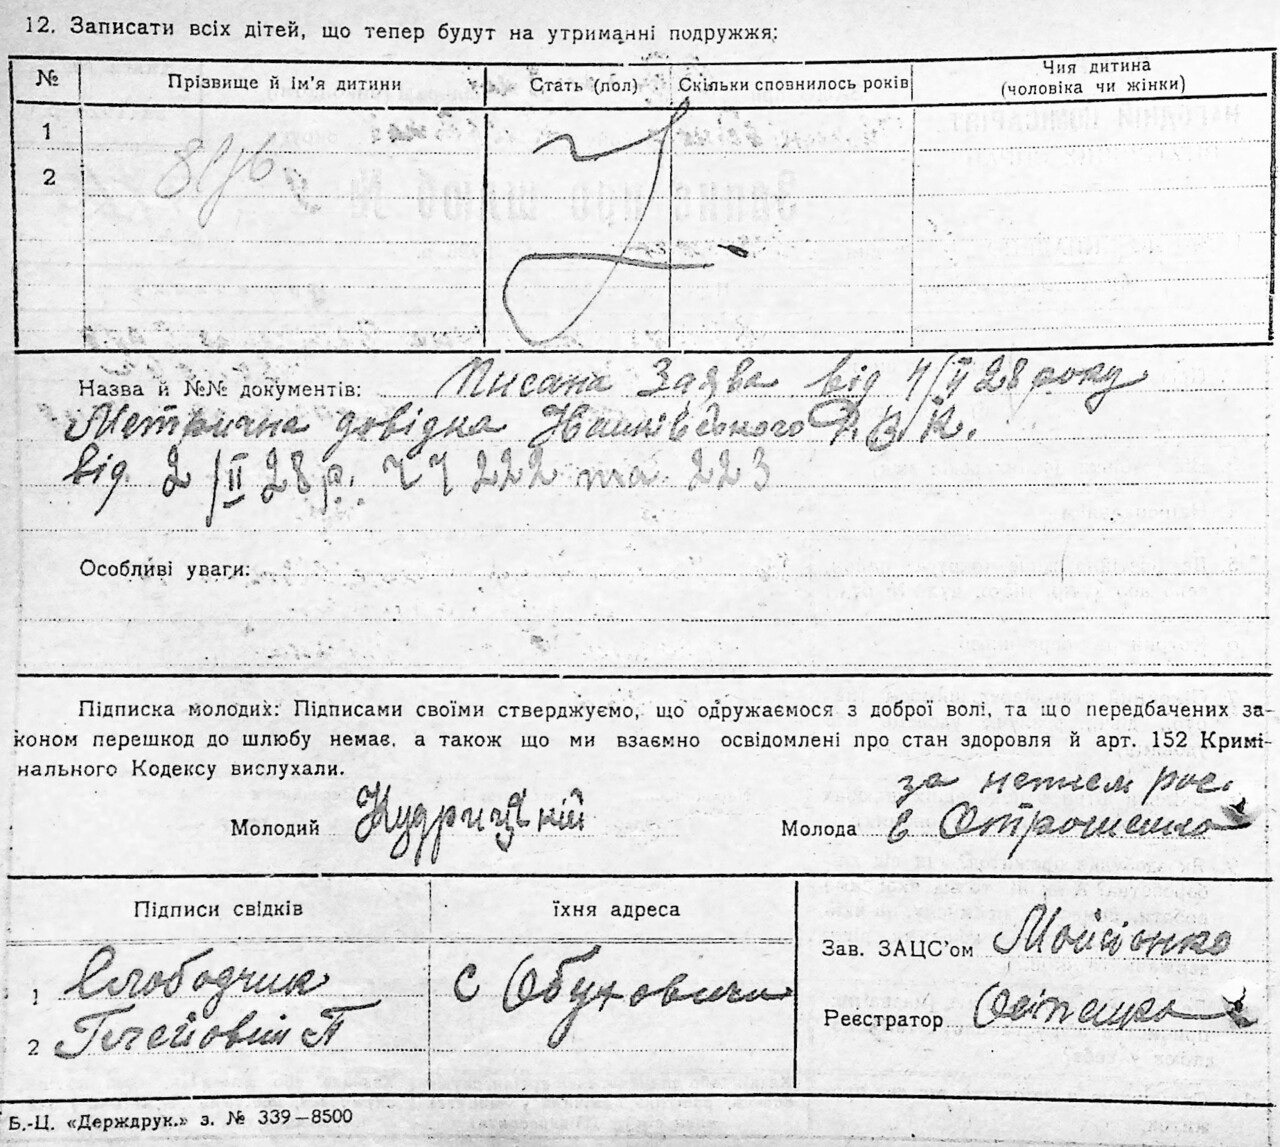 12. Записати всіх дітей, що тепер будут на утриманні подружжя:
№ Прізвище й ім'я дитини Стать (пол) Скільки сповнилось років Чия дитина
(чоловіка чи жінки)
1
2
Назва й №№ документів: Писана Заява від 4/II 28 року
Метрична довідка
від 2/II 28 р. 222 та 223
Особливі уваги:
Підписка молодих: Підписами своїми стверджуємо, що одружаємося з доброї волі, та що передбачених за-
коном перешкод до шлюбу немає, а також що ми взаємно освідомлені про стан здоровля й арт. 152 Кримі-
нального Кодексу вислухали.
за
Молодий Кудрицкій Молода
Підписи свідків їхня адреса
Зав. ЗАЦС'ом
1 Слободчик С Обуховичи
Реєстратор
2
Б.-Ц. «Держдрук.» з. № 339—8500